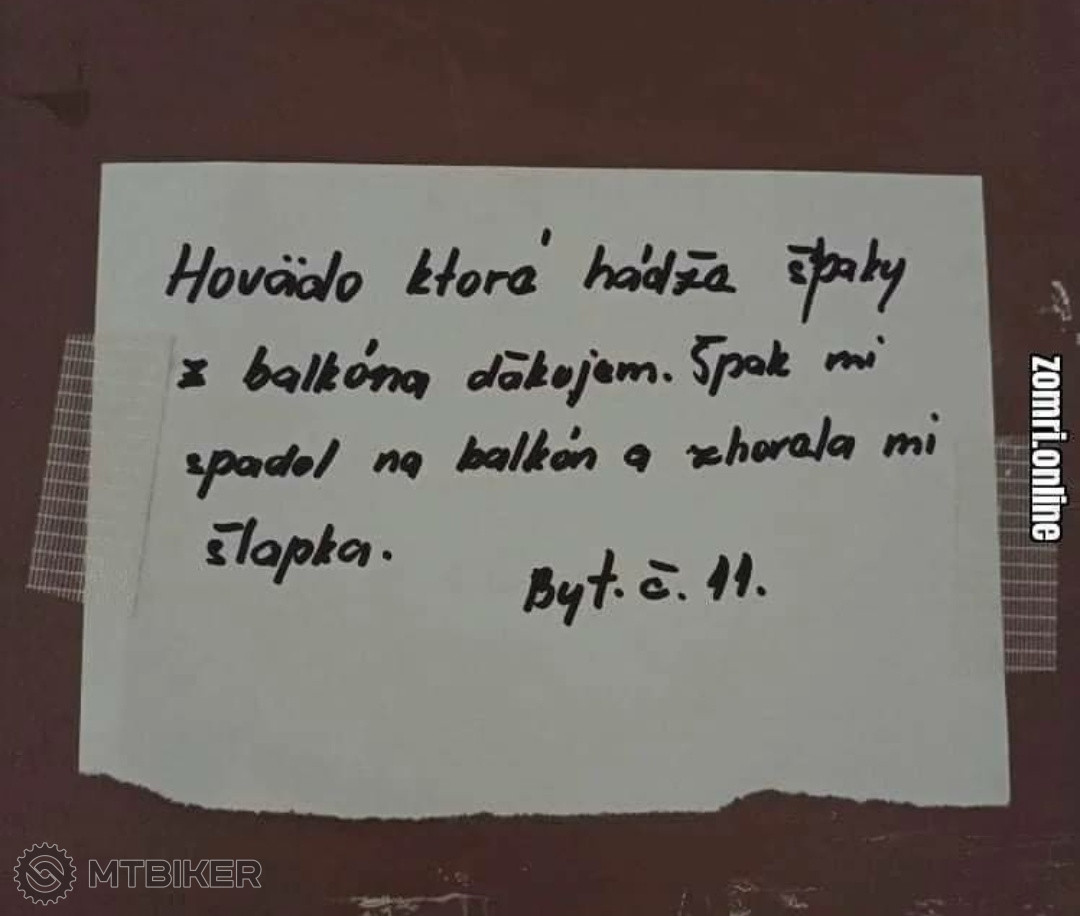 Hovädo ktoré hádže špaky
z balkóna ďakujem. Špak mi
spadol na balkón a zhorela mi
šlapka.
Byt. č. 11.
zomri.online
MTBIKER